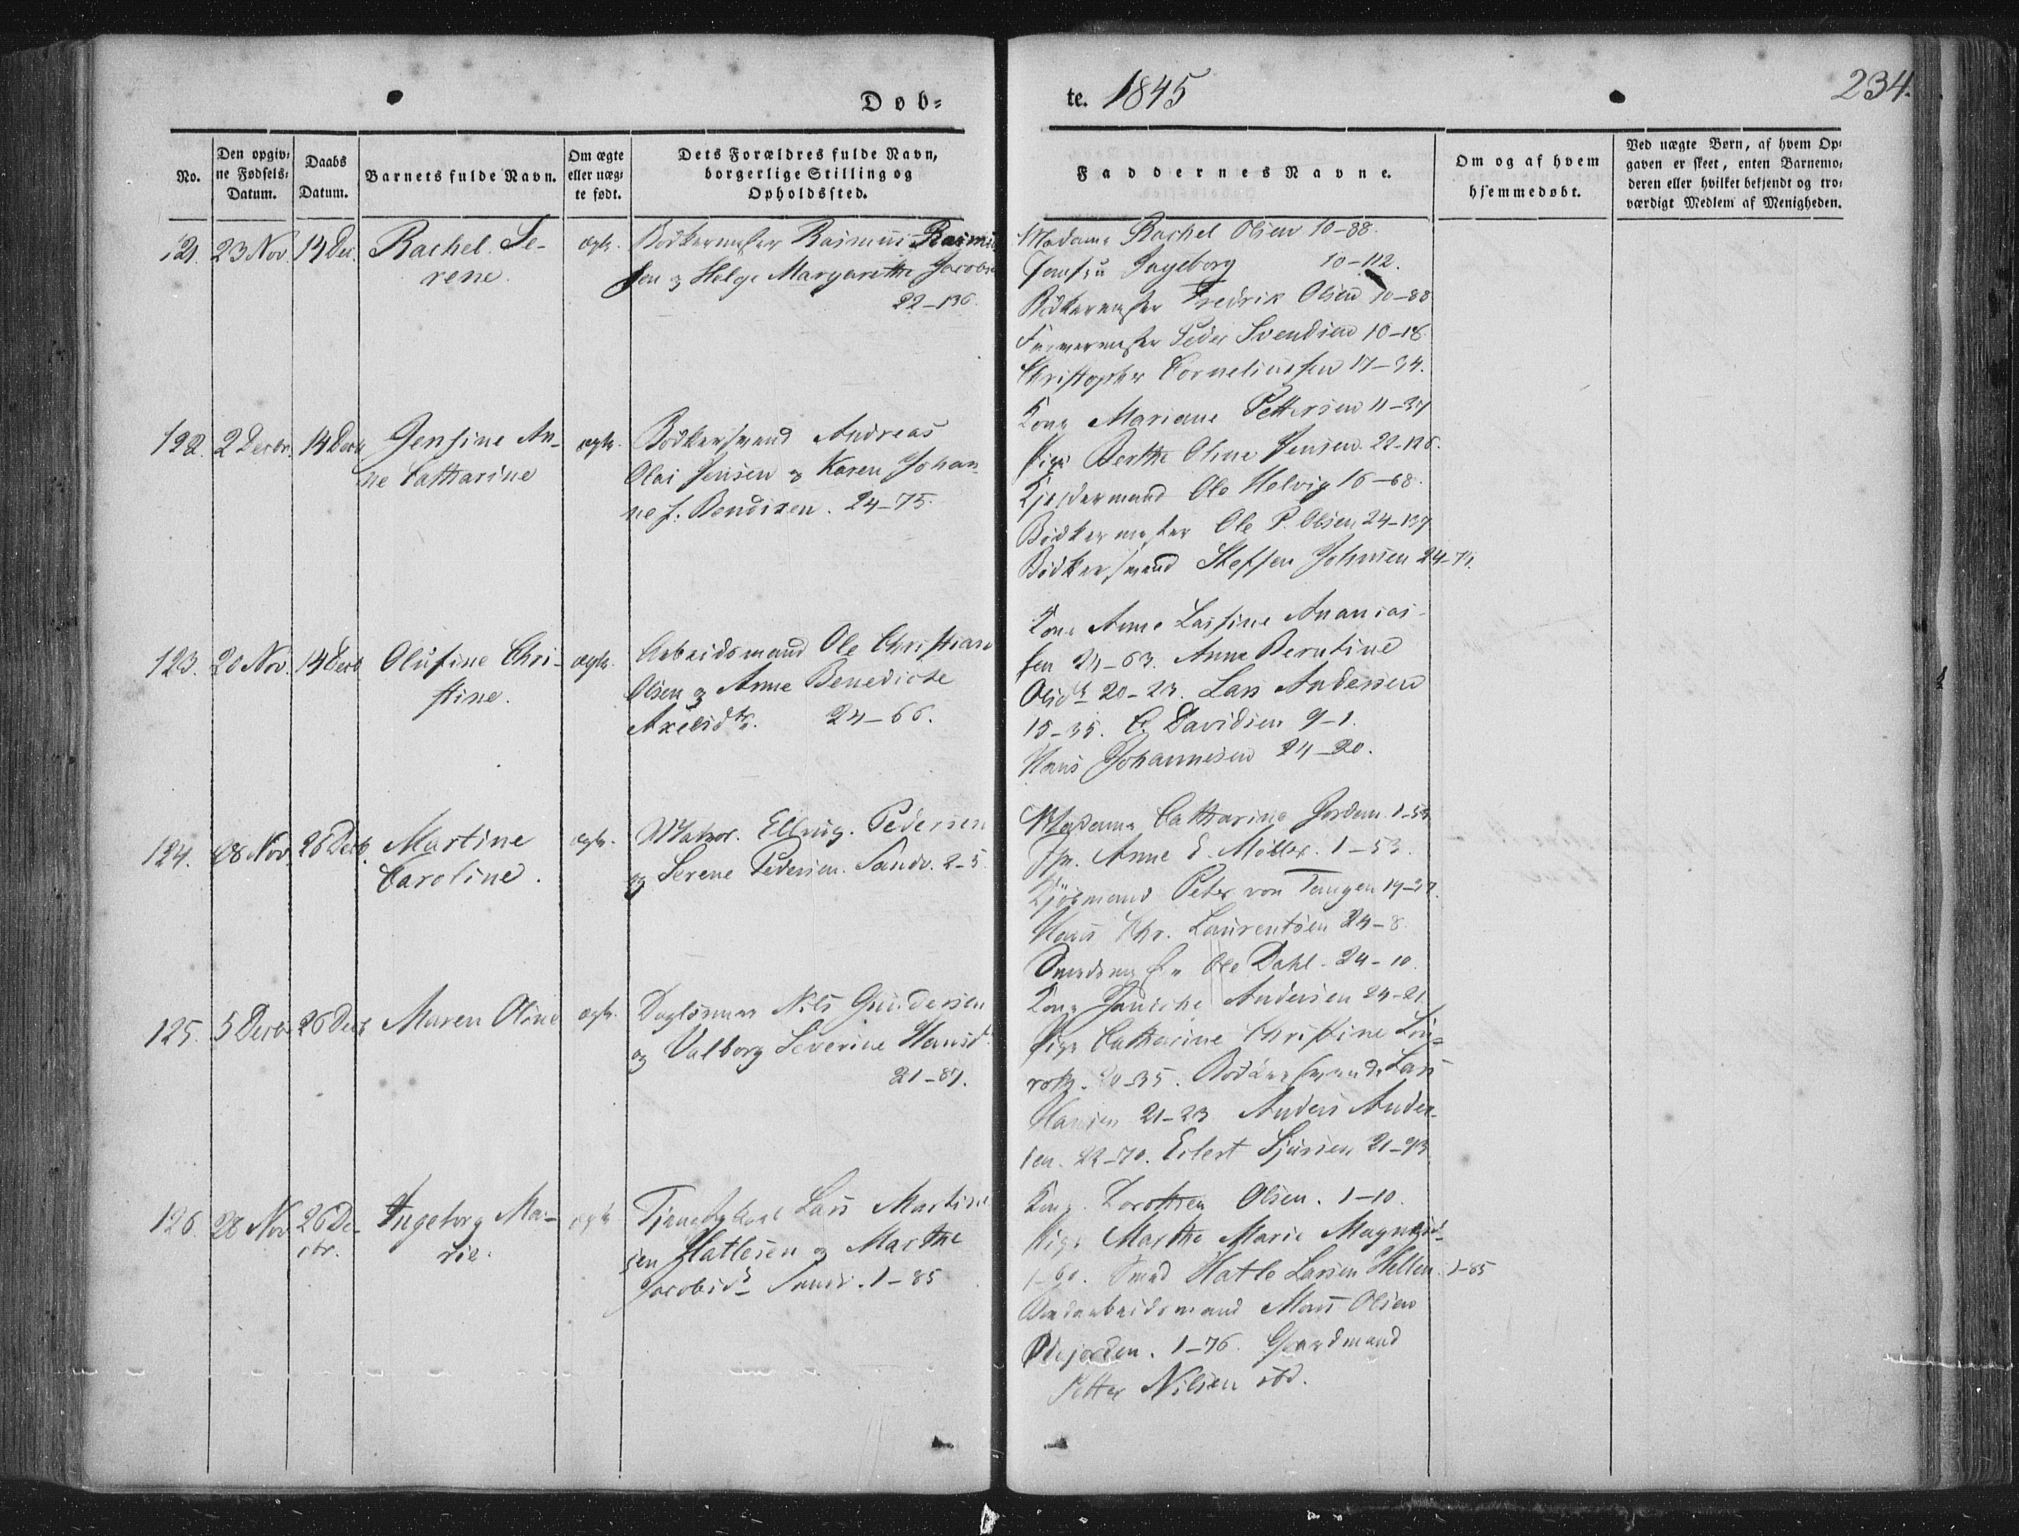 Døb=
te. 1845
234.
No.
Den opgiv=
ne Fødsels=
Datum.
Daabs
Datum.
Barnets fulde Navn.
Om ægte
eller uæg=
te født.
Dets Forældres fulde Navn,
borgerlige Stilling og
Opholdssted.
Faddernes Navne.
Om og af hvem
hjemmedøbt.
Ved uægte Børn, af hvem Op=
gaven er skeet, enten Barnemo=
deren eller hvilket bekjendt og tro=
værdigt Medlem af Menigheden.
121. 23 Nov. 14 Dec. Rachel Se-
rene.
ægte.
Bødkermester Rasmus Rasmus
sen og Helge Margarethe Jacobs
22-136.
Madame Rachel Olsen 10-88.
Jomfru Ingeborg 10-112.
Bødkermester Fredrik Olsen 10-88
Farvermester Peder Svendsen 10-18
Christopher Corneliussen 17-34.
122. 2 Decbr. 14 Decb Jensine An-
ne Catharine
ægte.
Bødkersvend Andreas
Olai Jensen og Karen Johan-
ne f. Bendixen. 24-75.
Kone Mariane Pettersen 11-37
Pige Berthe Oline Jensen 22-126.
Kjældermand Ole Helvig 16-68.
Bødkermester Ole P. Olsen 24-137
Bødkersvend Steffen Johnsen 24-75.
123. 20 Nov. 14 Decb Olufine Chri-
stine.
ægte.
Arbeidsmand Ole Christian
Olsen og Anne Benedicte
Axelsdtr. 24-66.
Kone Anne Lassine Ananias-
sen 24-63. Anne Berntine
Olsdr 20-23. Lars Andersen
15-35. C. Davidsen 9-1.
Hans Johannesen 24-20.
124. 28 Nov. 26 Decb. Martine
Caroline.
ægte.
Matros. Elling Pedersen
og Serene Pedersen. Sandv. 2-5.
Madame Catharine Jordan 1-53
Jfr. Anne E. Møller. 1-53.
Kjøbmand Peter von Tangen 19-
Hans Chr. Laurentsen 24-8.
Ole Dahl. 24-10.
125. 5 Decbr 26 Decb Maren Oline
ægte.
Nils Gundersen
og Valborg Severine Hansd.
21-87.
Kone Andersen 24-21
Pige Catharine Christine Lin=
roth. 20-35. Bødkersvende Lars
Hansen 21-23. Anders Ander-
sen. 22-70. Eilert Sjursen 21-93
126. 28 Nov 26 De-
cbr.
Ingeborg Ma-
rie.
ægte
Lars Martin
sen Hatlesen og Marthe
Jacobsdr Sandv. 1-85
Kone Dorothea Olsen. 1-10.
Pige Marthe Marie Magnusd.
1-60. Smed Hatle Larsen Hellen 1-85
Arbeidsmand Mons Olsen
Ødejorden. 1-76. Gaardmand
Petter Nilsen ibd.